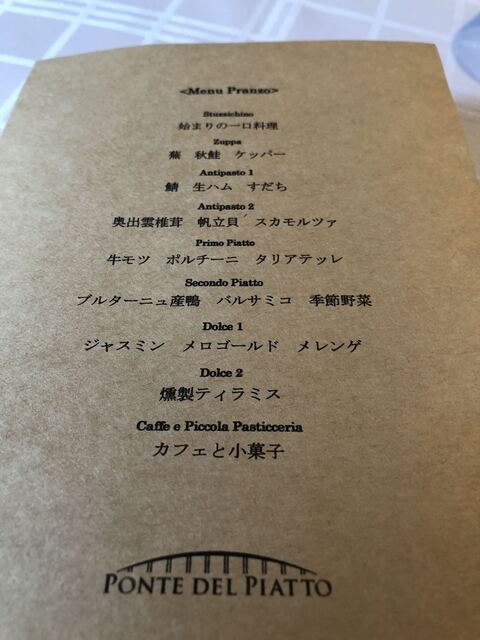 <Menu Pranzo>
Stuzzichino
始まりの一口料理
Zuppa
蕪 秋鮭 ケッパー
Antipasto 1
鯖 生ハム すだち
Antipasto 2
奥出雲椎茸 帆立貝 スカモルツァ
Primo Piatto
牛モツ ポルチーニ タリアテッレ
Secondo Piatto
ブルターニュ産鴨 バルサミコ 季節野菜
Dolce 1
ジャスミン メロゴールド メレンゲ
Dolce 2
燻製ティラミス
Caffe e Piccola Pasticceria
カフェと小菓子
PONTE DEL PIATTO